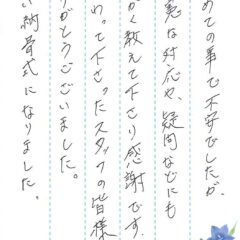 めての事で不安でしたが、
寧な対応や、疑問などにも
かく教えて下さり感謝です。
わって下さったスタッフの皆様
りがとうございました。
い納骨式になりました。